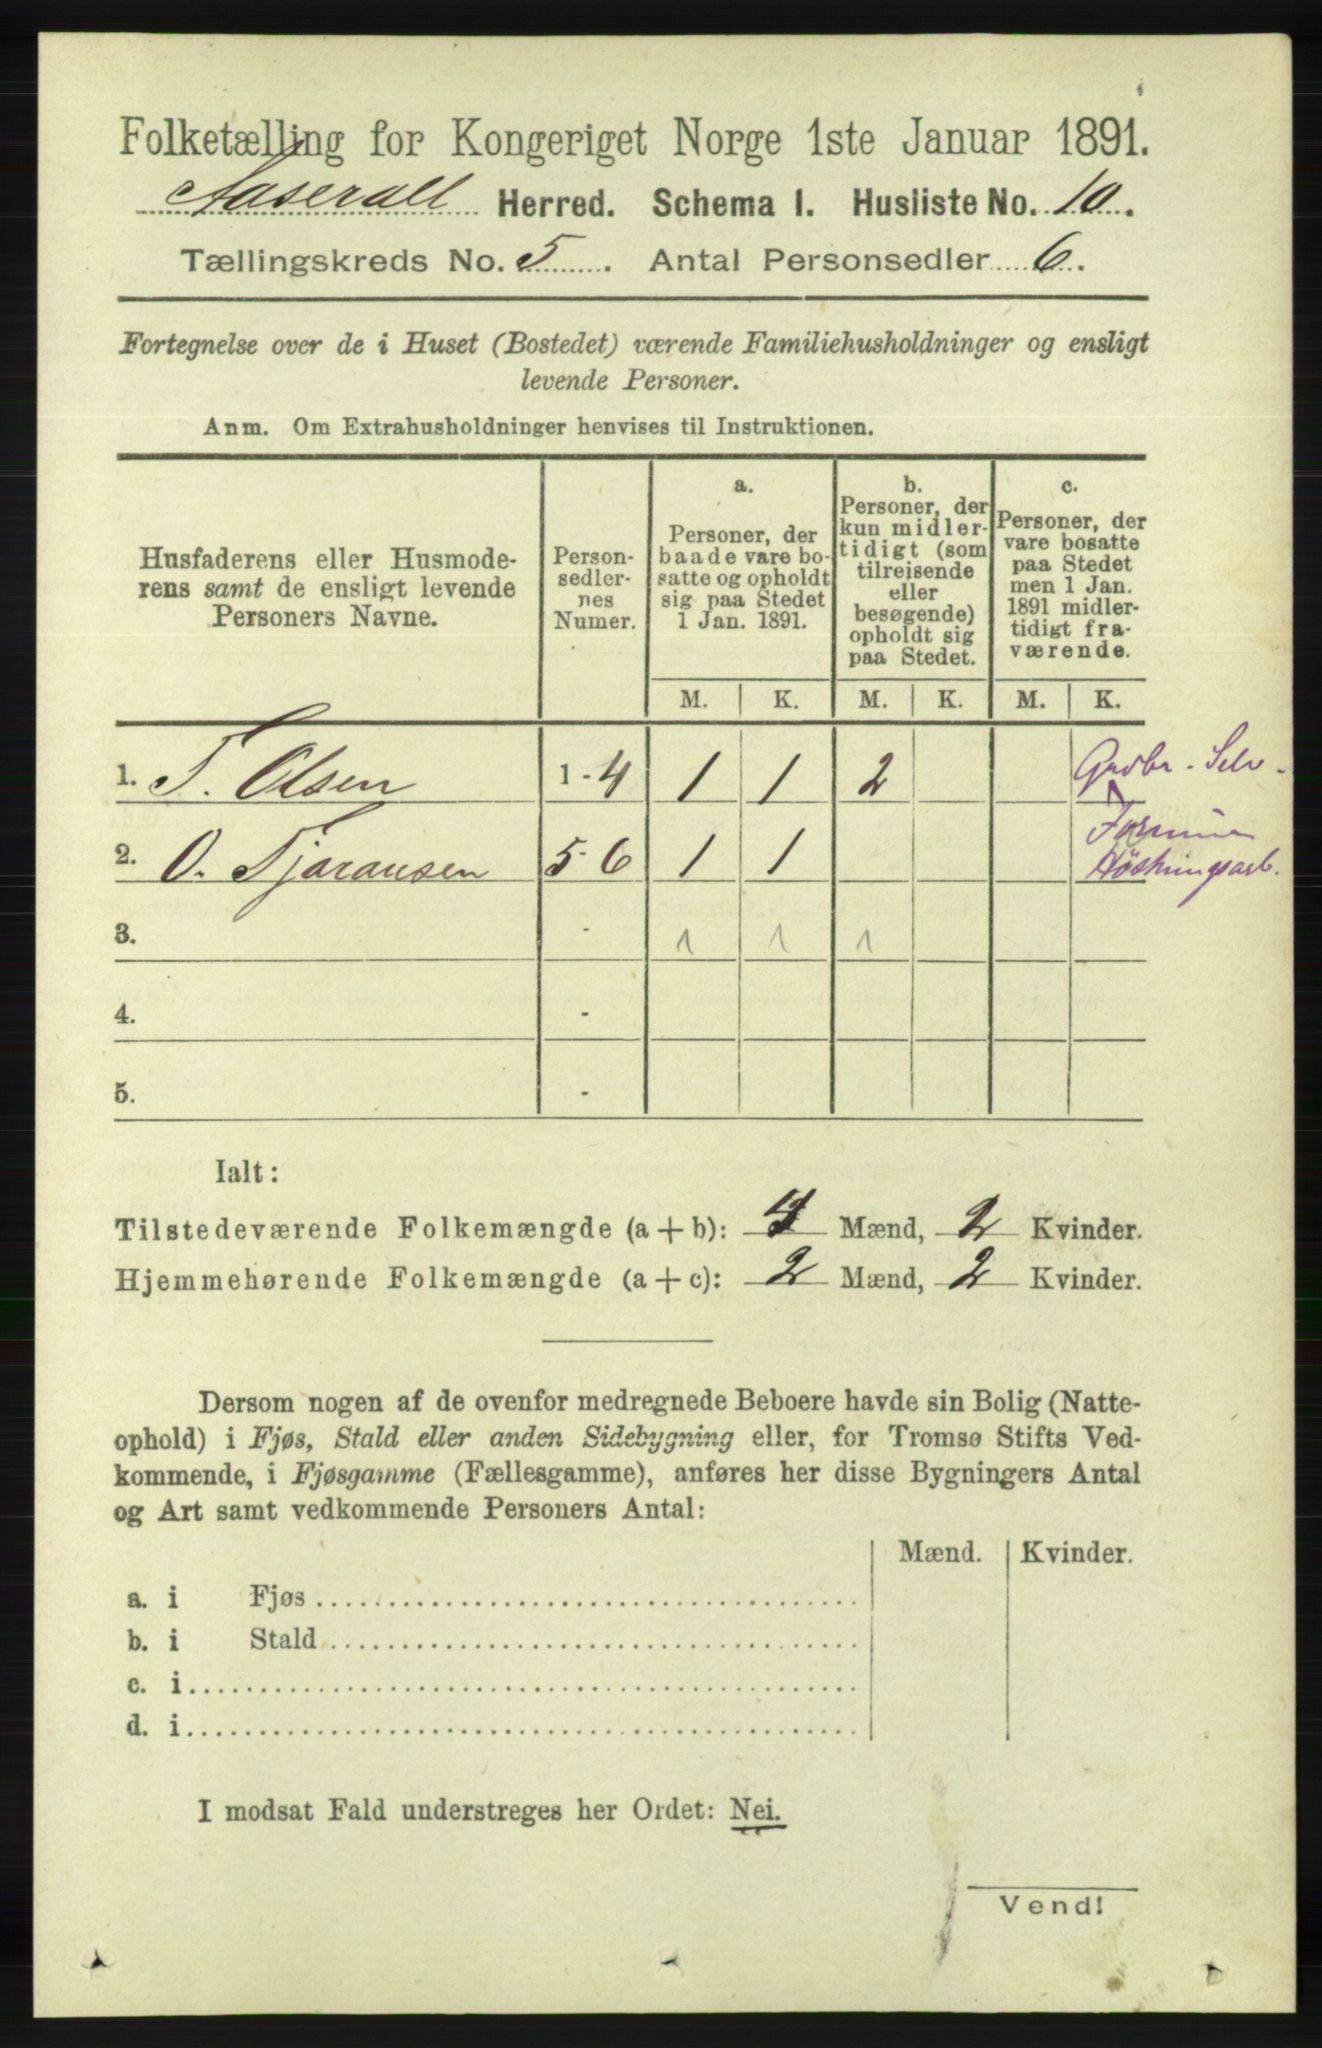 Folketælling for Kongeriget Norge 1ste Januar 1891.
Aaseral Herred. Schema I. Husliste No. 10.
Tællingskreds No. 5. Antal Personsedler 6.
Fortegnelse over de i Huset (Bostedet) værende Familiehusholdninger og ensligt
levende Personer.
Anm. Om Extrahusholdninger henvises til Instruktionen.
Husfaderens eller Husmode-
rens samt de ensligt levende
Personers Navne.
Person-
sedler-
nes
Numer.
a.
Personer, der
baade vare bo-
satte og opholdt
sig paa Stedet
1 Jan. 1891.
b.
Personer, der
kun midler-
tidigt (som
tilreisende
eller
besøgende)
opholdt sig
paa Stedet.
c.
Personer, der
vare bosatte
paa Stedet
men 1 Jan.
1891 midler-
tidigt fra-
værende.
M. K. M. K. M. K.
1. T. Olsen 1-4 1 1 2 Grdbr - Selv -
2. O. Tjøransen 5-6 1 1
3. - 1 1 1
4. -
5. -
Ialt:
Tilstedeværende Folkemængde (a+b): 4 Mænd, 2 Kvinder.
Hjemmehørende Folkemængde (a+c): 2 Mænd, 2 Kvinder.
Dersom nogen af de ovenfor medregnede Beboere havde sin Bolig (Natte-
ophold) i Fjøs, Stald eller anden Sidebygning eller, for Tromsø Stifts Ved-
kommende, i Fjøsgamme (Fællesgamme), anføres her disse Bygningers Antal
og Art samt vedkommende Personers Antal:
Mænd. Kvinder.
a. i Fjøs
b. i Stald
c. i
d. i
I modsat Fald understreges her Ordet: Nei.
Vend!